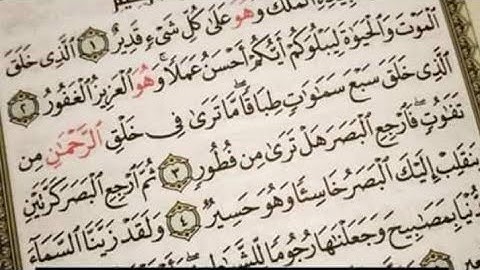 ٱلْمُلْكُ وَهُوَ عَلَىٰ كُلِّ شَىْءٍ قَدِيرٌ ١ ٱلَّذِى خَلَقَ
ٱلْمَوْتَ وَٱلْحَيَوٰةَ لِيَبْلُوَكُمْ أَيُّكُمْ أَحْسَنُ عَمَلًا ۚ وَهُوَ ٱلْعَزِيزُ ٱلْغَفُورُ ٢
ٱلَّذِى خَلَقَ سَبْعَ سَمَـٰوَٰتٍ طِبَاقًا ۖ مَّا تَرَىٰ فِى خَلْقِ ٱلرَّحْمَـٰنِ مِن
تَفَـٰوُتٍ ۖ فَٱرْجِعِ ٱلْبَصَرَ هَلْ تَرَىٰ مِن فُطُورٍ ٣ ثُمَّ ٱرْجِعِ ٱلْبَصَرَ كَرَّتَيْنِ
يَنقَلِبْ إِلَيْكَ ٱلْبَصَرُ خَاسِئًا وَهُوَ حَسِيرٌ ٤ وَلَقَدْ زَيَّنَّا ٱلسَّمَآءَ
بِمَصَـٰبِيحَ وَجَعَلْنَـٰهَا رُجُومًا